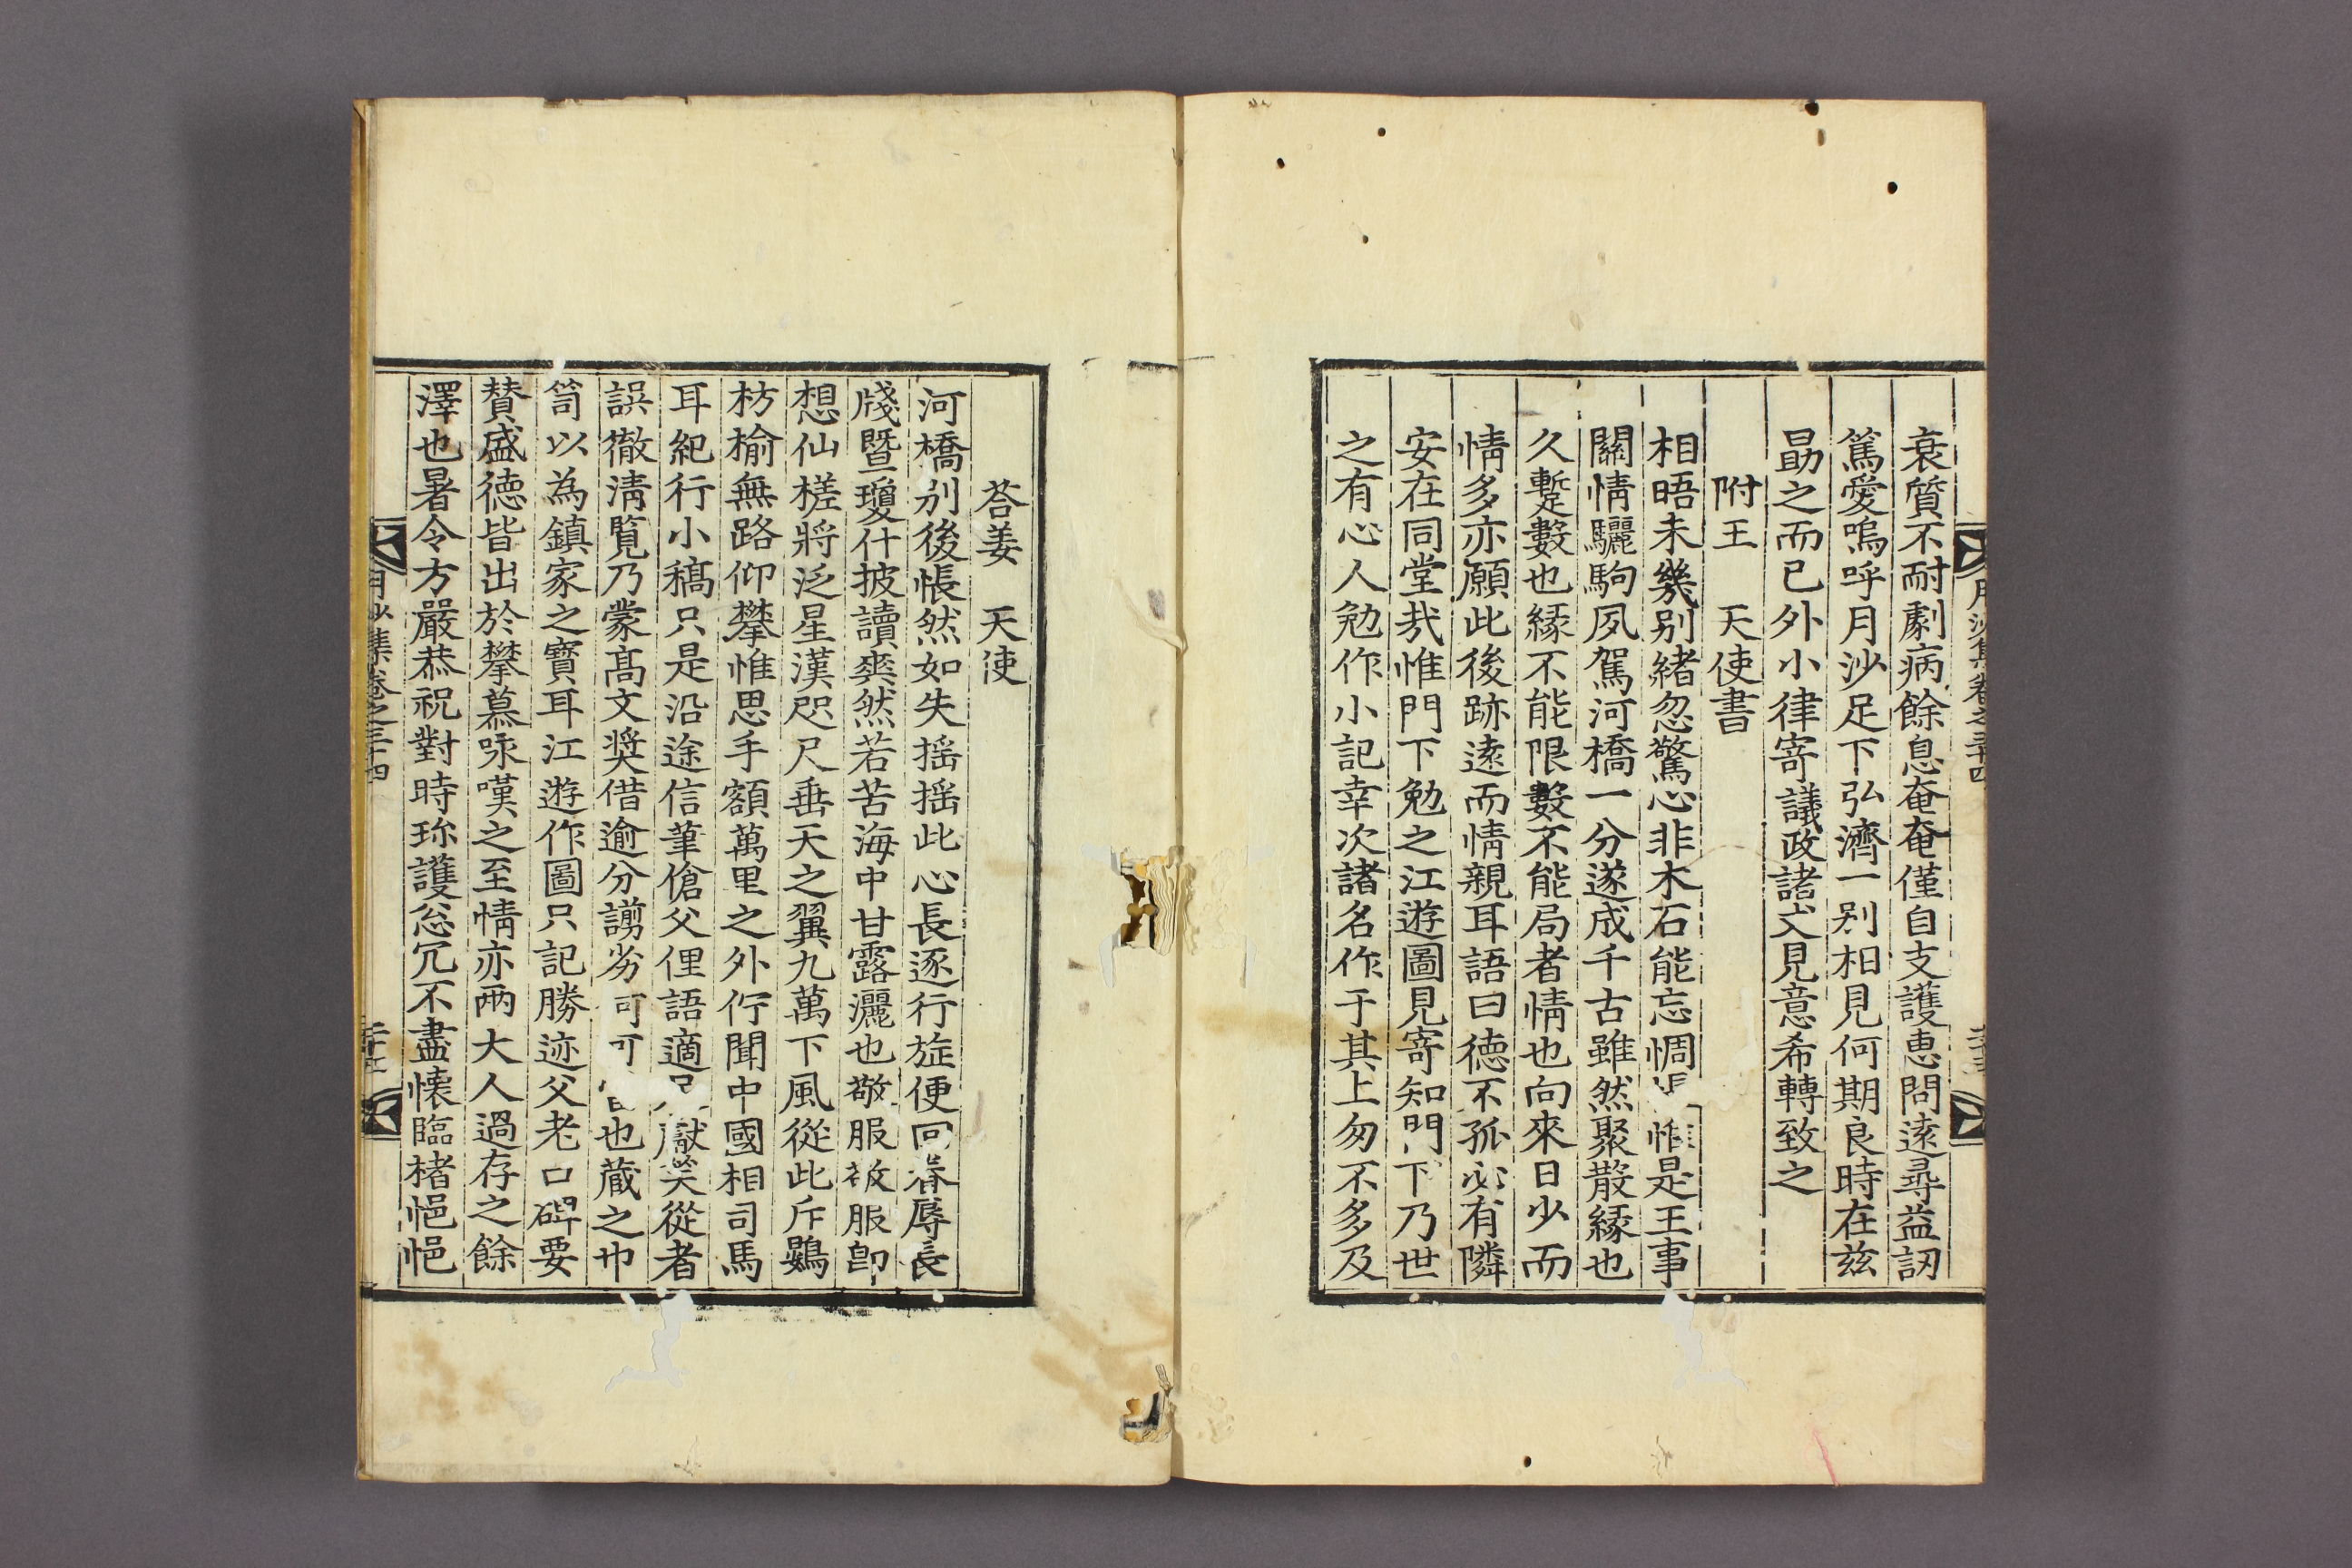 月沙集卷之三十四
衰質不耐劇病餘息奄奄僅自支護惠問遠尋益認
篤愛嗚呼月沙足下弘濟一别相見何期良時在兹
勗之而已外小律寄議政諸丈見意希轉致之
附王　天使書
相晤未幾别緒忽驚心非木石能忘惆悵惟是王事
關情驪駒夙駕河橋一分遂成千古雖然聚散緣也
久蹔數也緣不能限數不能局者情也向來日少而
情多亦願此後跡遠而情親耳語曰德不孤必有隣
安在同堂㢤惟門下勉之江遊圖見寄知門下乃世
之有心人勉作小記幸次諸名作于其上匆不多及
荅姜　天使
河橋别後悵然如失揺揺此心長逐行旌便回眷辱長
牋曁瓊什披讀爽然若苦海中甘露灑也敬服敬服卽
想仙槎將泛星漢咫尺垂天之翼九萬下風從此斥鷃
枋楡無路仰攀惟思手額萬里之外佇聞中國相司馬
耳紀行小稿只是沿途信筆傖父俚語適獻笑從者
誤徹淸覽乃蒙髙文奬借逾分謭劣可也蔵之巾
笥以為鎮家之寳耳江遊作圖只記勝迹父老口碑要
賛盛德皆出於攀慕咏嘆之至情亦兩大人過存之餘
澤也暑令方嚴恭祝對時珎護忩冗不盡懷臨楮悒悒
月沙集卷之三十四